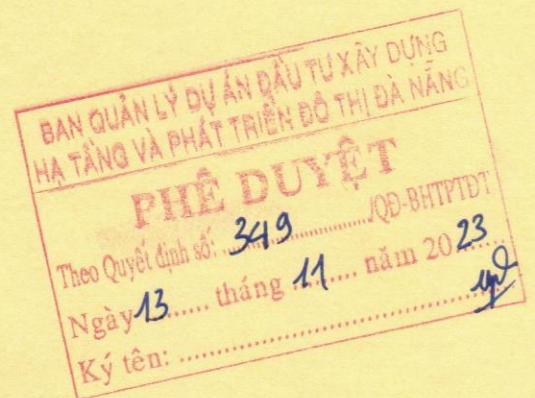 BAN QUẢN LÝ DỰ ÁN ĐẦU TƯ XÂY DỰNG
HẠ TẦNG VÀ PHÁT TRIỂN ĐÔ THỊ ĐÀ NẴNG
PHÊ DUYỆT
Theo Quyết định số: 349 /QĐ-BHTPTĐT
Ngày 13 tháng 11 năm 2023
Ký tên: